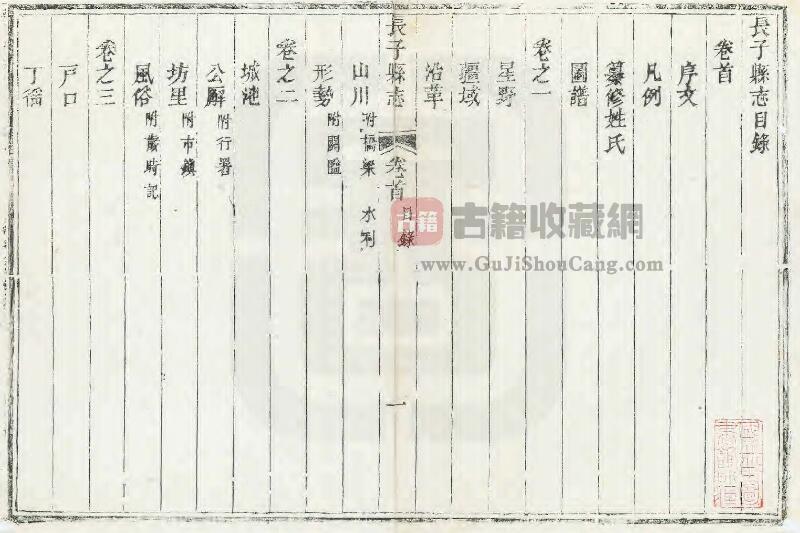 長子縣志目錄
卷首
序文
凡例
纂修姓氏
圖譜
卷之一
星野
疆域
沿革
長子縣志 卷首 目錄 一
山川 附橋梁 水利
形勢 附關隘
卷之二
城池
公廨 附行署
坊里 附市鎮
風俗 附歲時記
卷之三
戶口
丁徭
古籍 古籍收藏網
www.GuJiShouCang.com